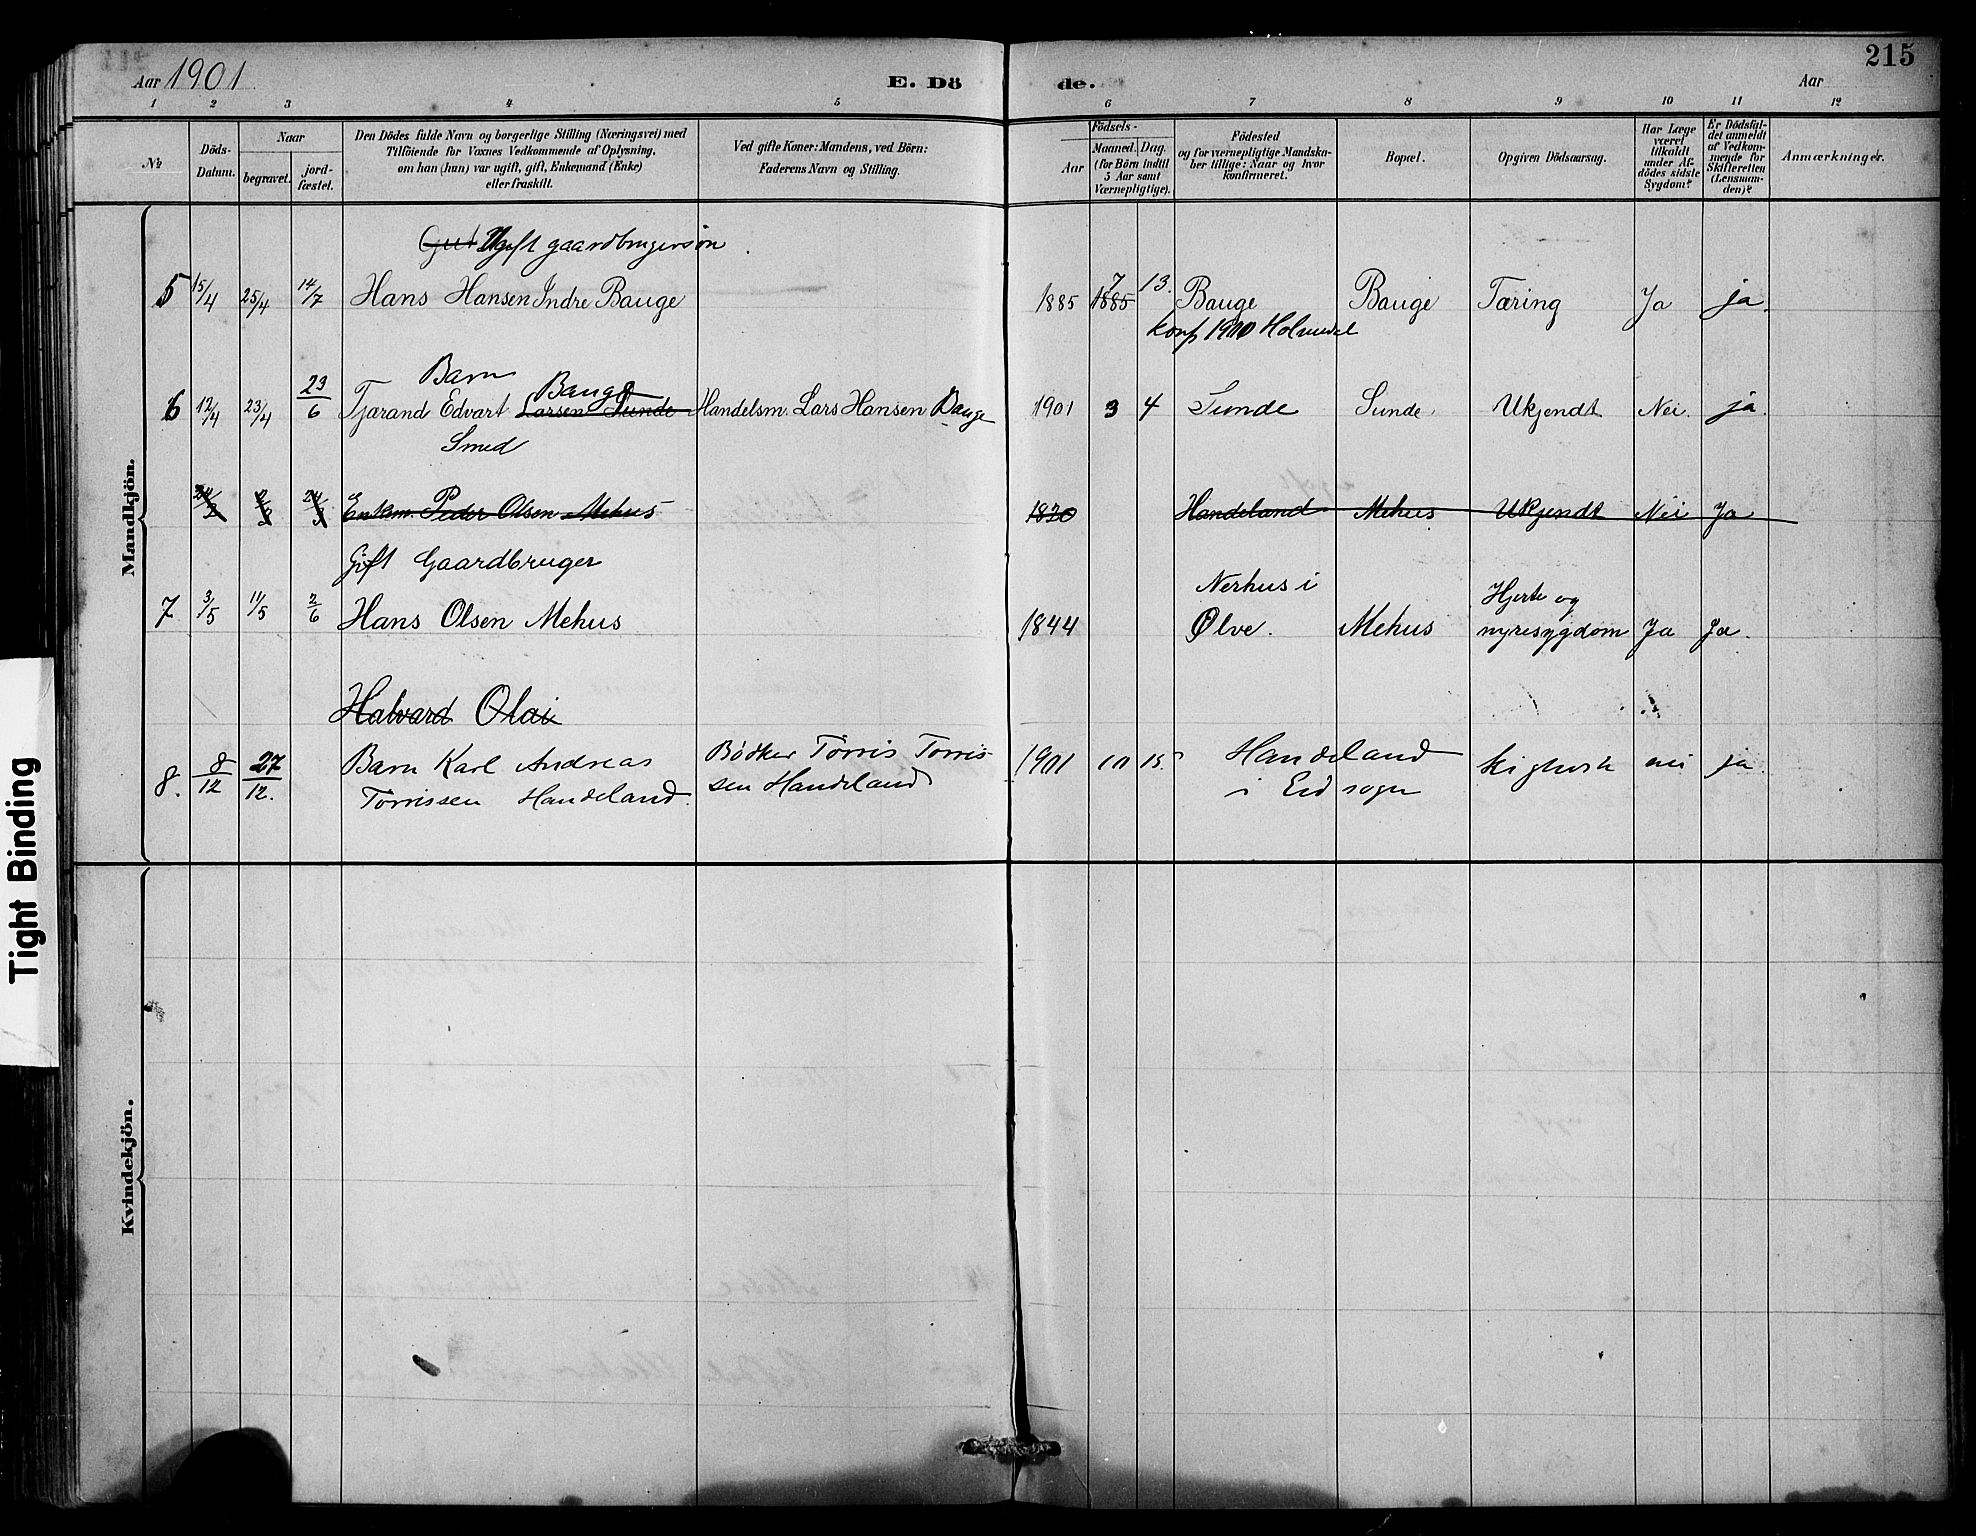 215
Aar 1901. E. Dö de. Aar
1 2 3 4 5 6 7 8 9 10 11 12
№
Döds-Datum.
Naar
begravet.
jord-fæstet.
Den Dödes fulde Navn og borgerlige Stilling (Næringsvei) med
Tilföiende for Voxnes Vedkommende af Oplysning,
om han (hun) var ugift, gift, Enkemand (Enke)
eller fraskilt.
Ved gifte Koner: Mandens, ved Börn:
Faderens Navn og Stilling.
Födsels-
Aar
Maaned. Dag.
(for Börn indtil
5 Aar samt
Værnepligtige).
Födested
og for værnepligtige Mandska-
ber tillige: Naar og hvor
konfirmeret.
Bopæl.
Opgiven Dödsaarsag.
Har Læge
været
tilkaldt
under Af-
dödes sidste
Sygdom?
Er Dödsfal-
det anmeldt
af Vedkom-
mende for
Skifteretten
(Lensman-
den)?
Anmærkninger.
Mandkjön.
Gut Ugift gaardbrugersøn
7 13.
5 15/4 25/4 14/7 Hans Hansen Indre Bauge 1885 1885 Bauge Bauge Tæring Ja ja.
konf 1900 Holmedal
Barn Bauge
6 12/4 23/4 23/6 Tjarand Edvart Larsen Sunde Handelsm. Lars Hansen Bauge 1901 3 4 Sunde Sunde Ukjendt Nei. ja.
Smed
Enkem. Peder Olsen Mehus 1820 Handeland Mehus Ukjendt Nei Ja
Gift Gaardbruger
Nerhus i Hjerte og
7 3/5 11/5 2/6 Hans Olsen Mehus 1844 Ølve. Mehus nyresygdom Ja Ja.
Halvard Olai
8. 8/12 27/12. Barn Karl Andreas Bödker Torris Torris- 1901 10 15 Handeland kighoste nei ja.
Torrissen Handeland. sen Handeland i Eid sogn
Kvindekjön.
Tight Binding